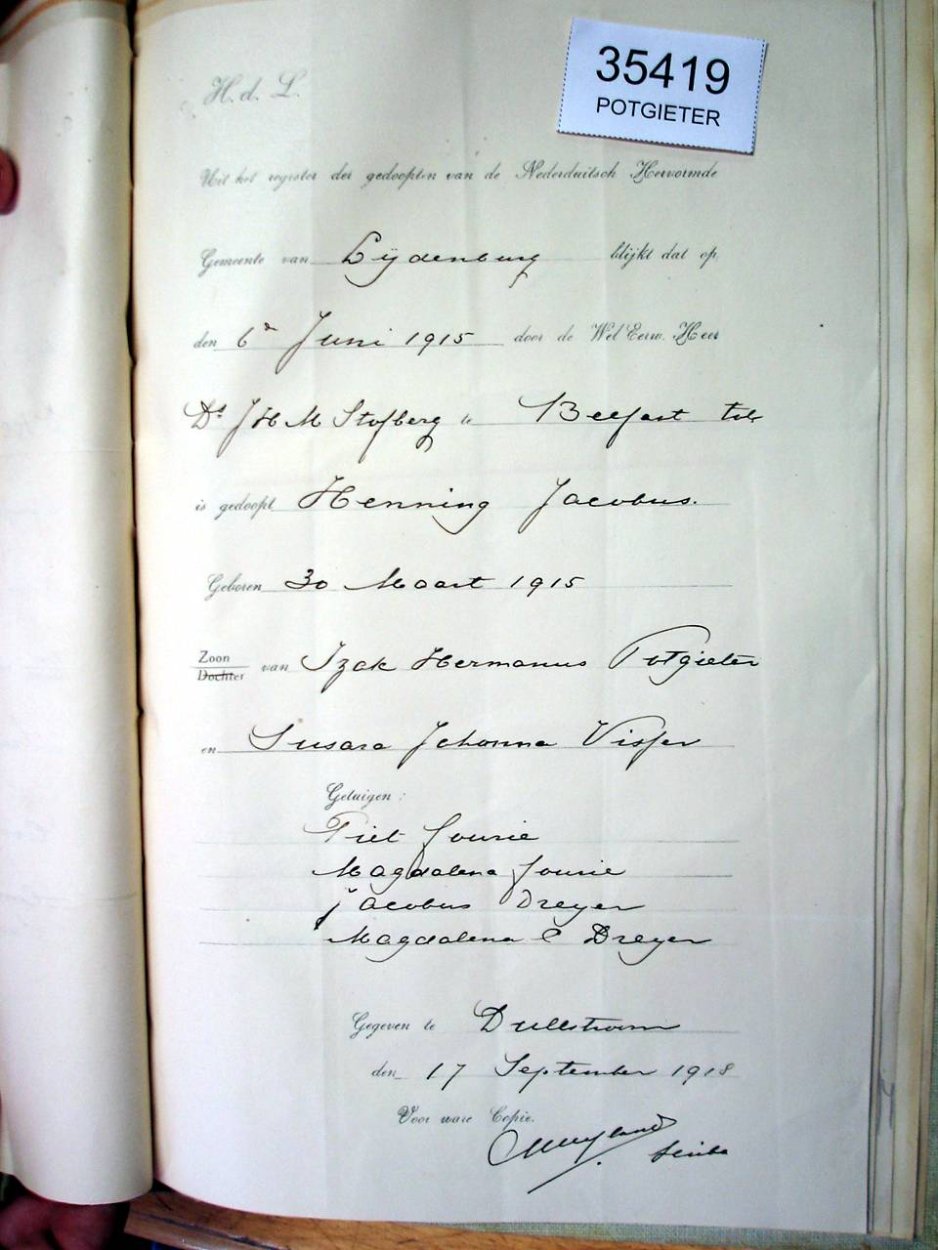 35419
POTGIETER
H. d. L.
Uit het register der gedoopten van de Nederduitsch Hervormde
Gemeente van Lydenburg blijkt dat op
den 6de Juni 1915 door de Wel Eerw. Heer
Ds J H M Stofberg te Belfast
is gedoopt Henning Jacobus.
Geboren 30 Maart 1915
Zoon
Dochter van Izak Hermanus Potgieter
en Susara Johanna Visser
Getuigen :
Piet Fourie
Magdalena Fourie
Jacobus Dreyer
Magdalena C Dreyer
Gegeven te Dullstroom
den 17 September 1918
Voor ware Copie.
Scriba